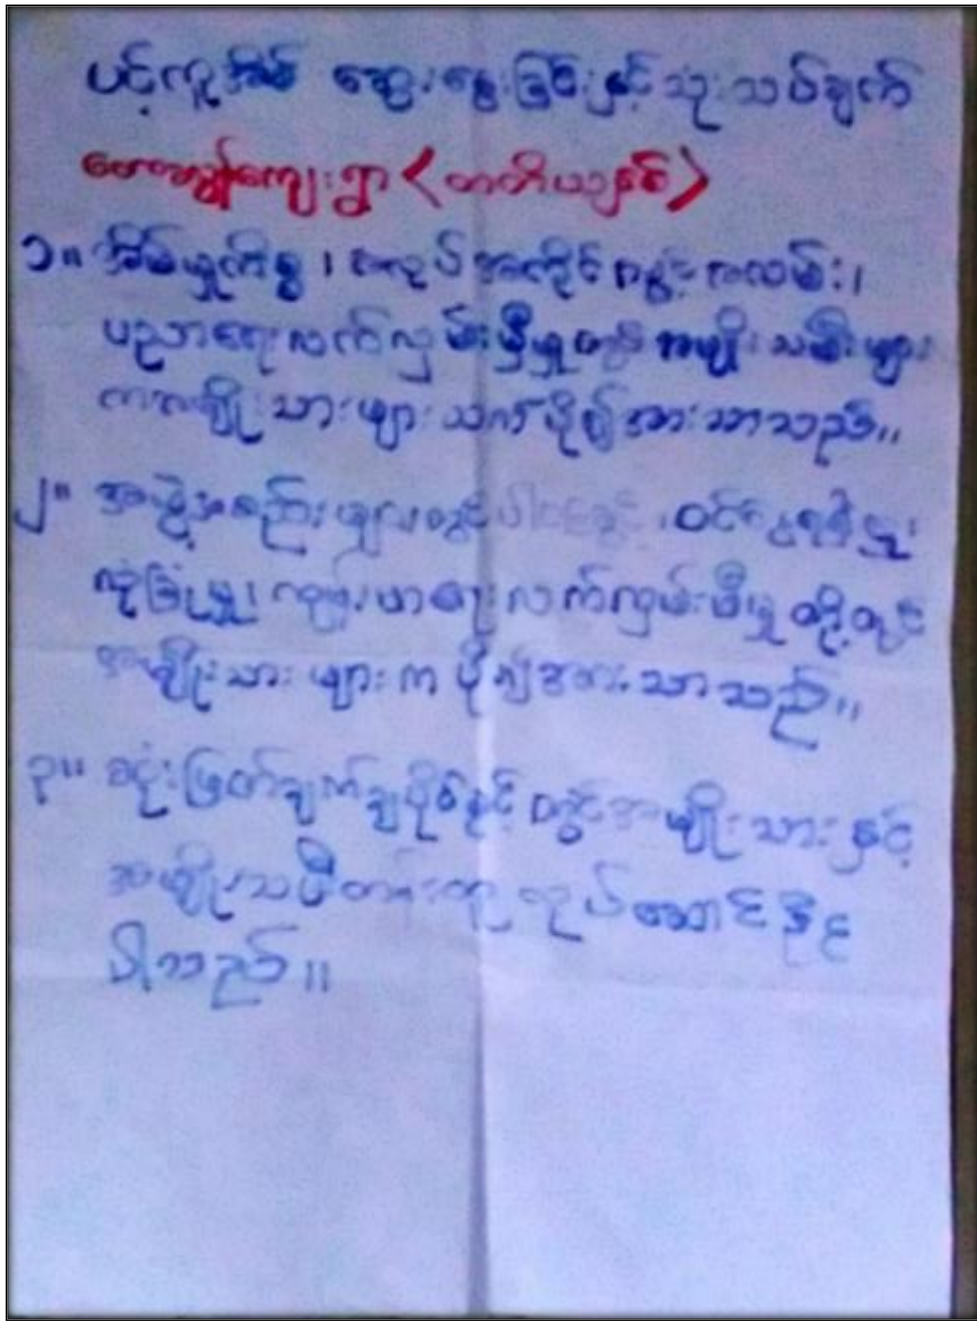 ပင့်ကူအိမ် ဆွေးနွေးခြင်းနှင့်သုံးသပ်ချက်
ကျေးရွာ (တတိယနှစ်)
၁။ အိမ်မှုကိစ္စ၊ အလုပ်အကိုင်အခွင့်အလမ်း၊
ပညာရေးလက်လှမ်းမှီမှုတွင် အမျိုးသမီးများ
က အမျိုးသားများထက်ပို၍အားသာသည်။
၂။ အဖွဲ့အစည်းများတွင်ပါဝင်ခွင့်၊ ဝင်ငွေရရှိမှု၊
လုံခြုံမှု၊ ကျန်းမာရေးလက်လှမ်းမီမှု တို့တွင်
အမျိုးသားများက ပို၍အားသာသည်။
၃။ ဆုံးဖြတ်ချက်ချပိုင်ခွင့်တွင်အမျိုးသားနှင့်
အမျိုးသမီးတန်းတူ လုပ်ဆောင်နိုင်
ပါသည်။